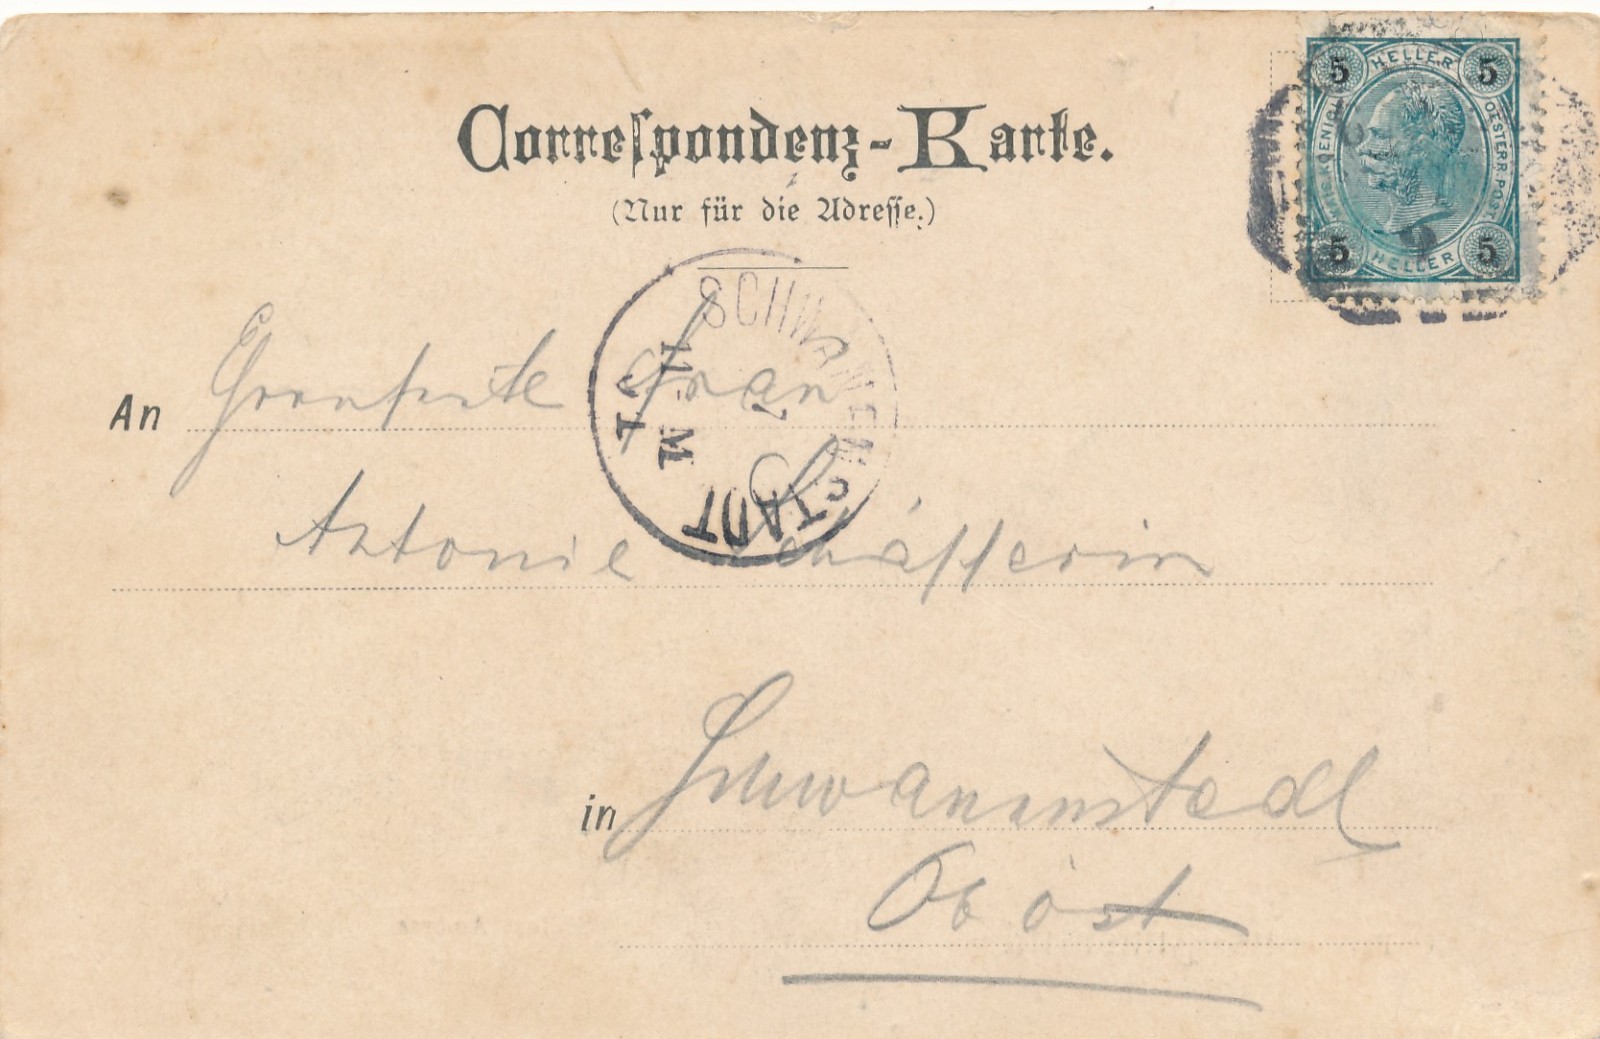 Correspondenz-Karte.
(Nur für die Adresse.)
5 HELLER 5
KAIS. KOENIGL. OESTERR. POST.
5 HELLER 5
SCHWANENSTADT
An Geehrteste Frau
Antonie Schäfferin
in Schwanenstadt
Ob öst